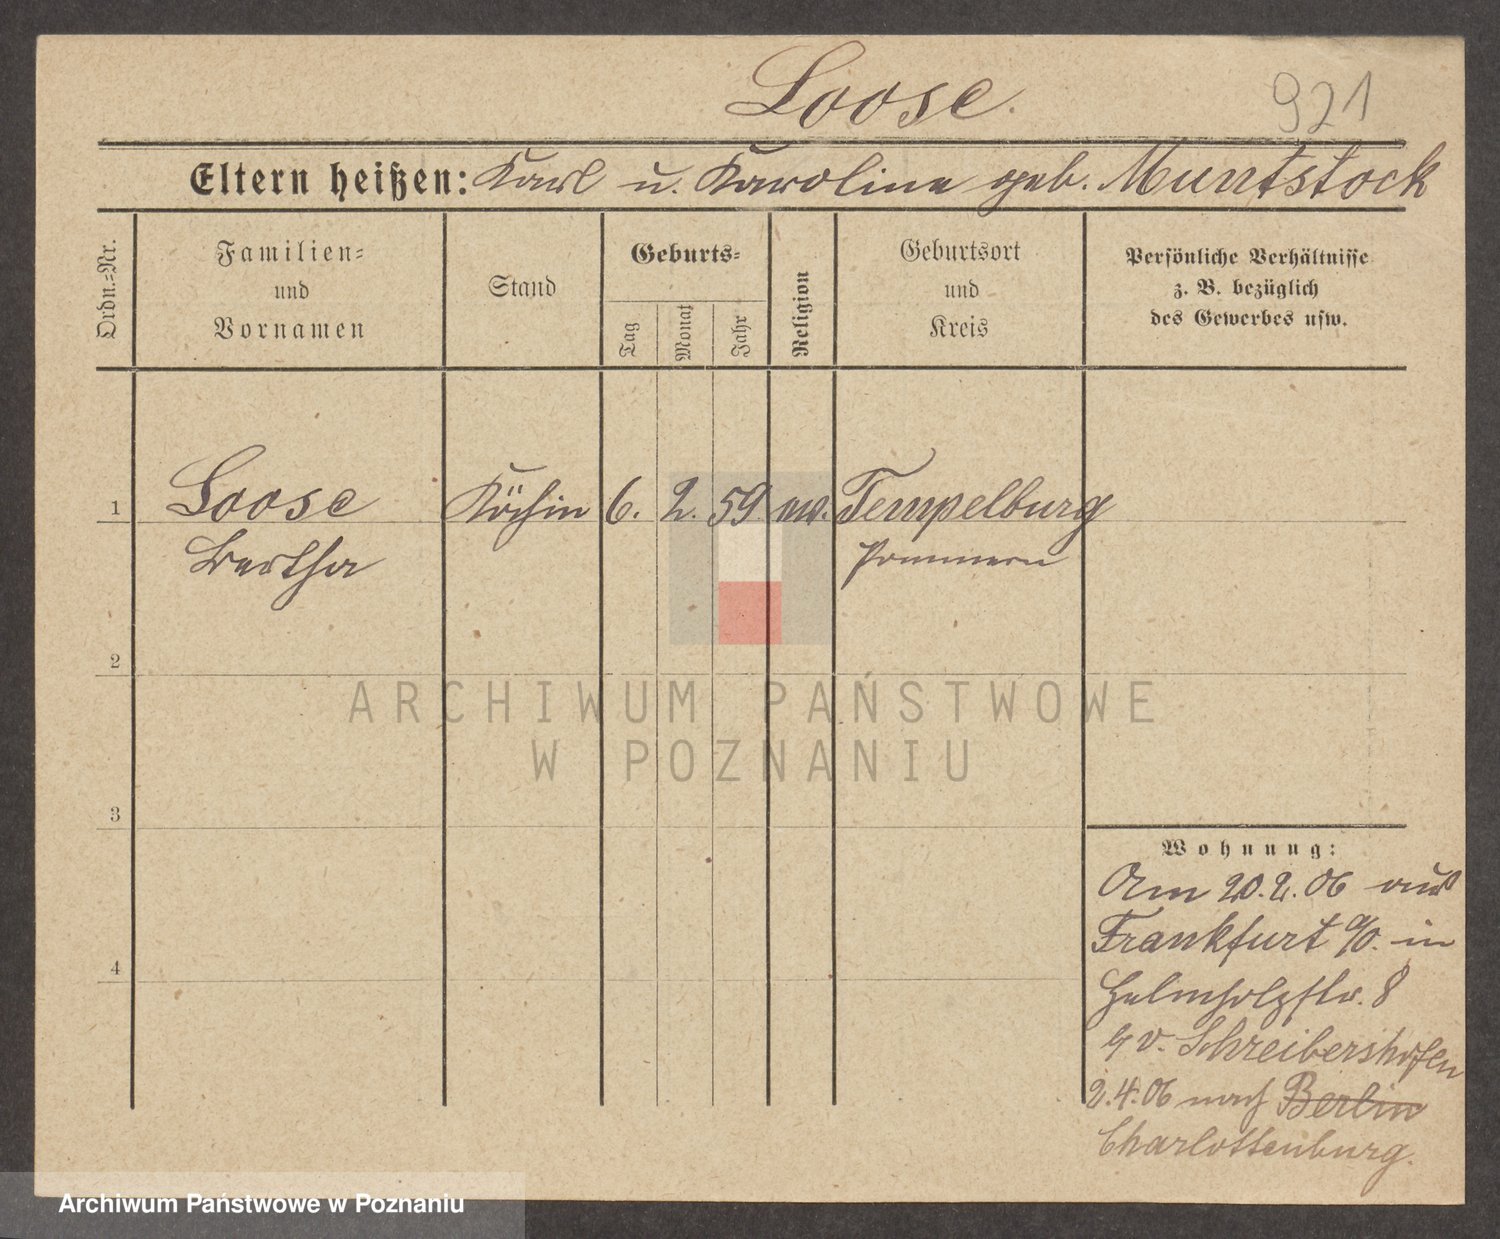 Loose.
921
Eltern heißen: Karl u. Karoline geb. Muntstock
Ordn.=Nr.
Familien=
und
Vornamen
Stand
Geburts=
Tag
Monat
Jahr
Religion
Geburtsort
und
Kreis
Persönliche Verhältnisse
z. B. bezüglich
des Gewerbes usw.
1 Loose Köchin 6. 2. 59 ev. Tempelburg
Bertha Pommern
2
3
4
Wohnung:
Am 20.2.06 aus
Frankfurt a/O. in
Helmholzstr. 8
b/ v. Schreibershofen
2.4.06 nach Berlin
Charlottenburg.
ARCHIWUM PAŃSTWOWE
W POZNANIU
Archiwum Państwowe w Poznaniu